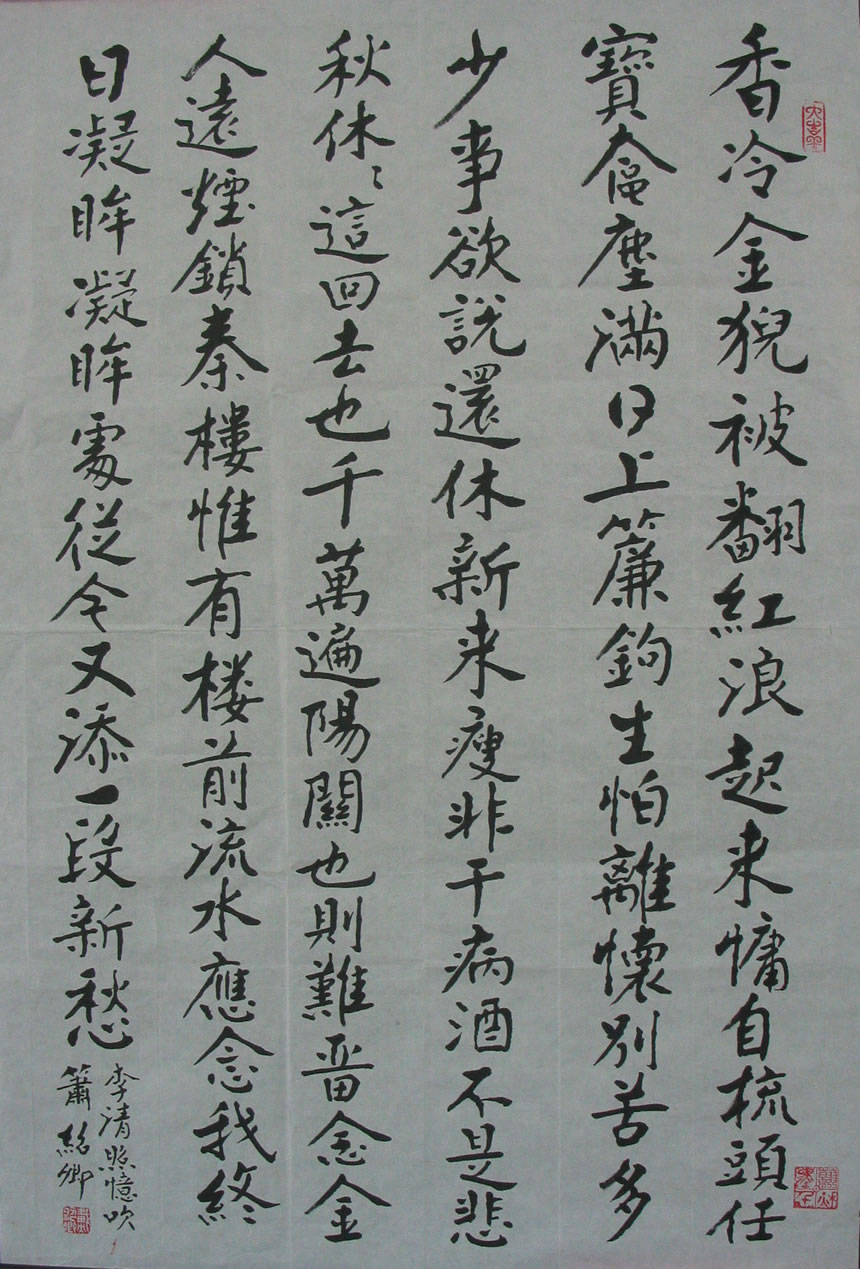 香冷金猊被翻紅浪起来慵自梳頭任
寶奩塵滿日上簾鉤生怕離懷別苦多
少事欲說還休新来瘦非干病酒不是悲
秋休〻這回去也千萬遍陽關也則難畱念金
人遠煙鎖秦樓惟有楼前流水應念我終
日凝眸凝眸處從今又添一段新愁
李清照憶吹
簫 紹卿